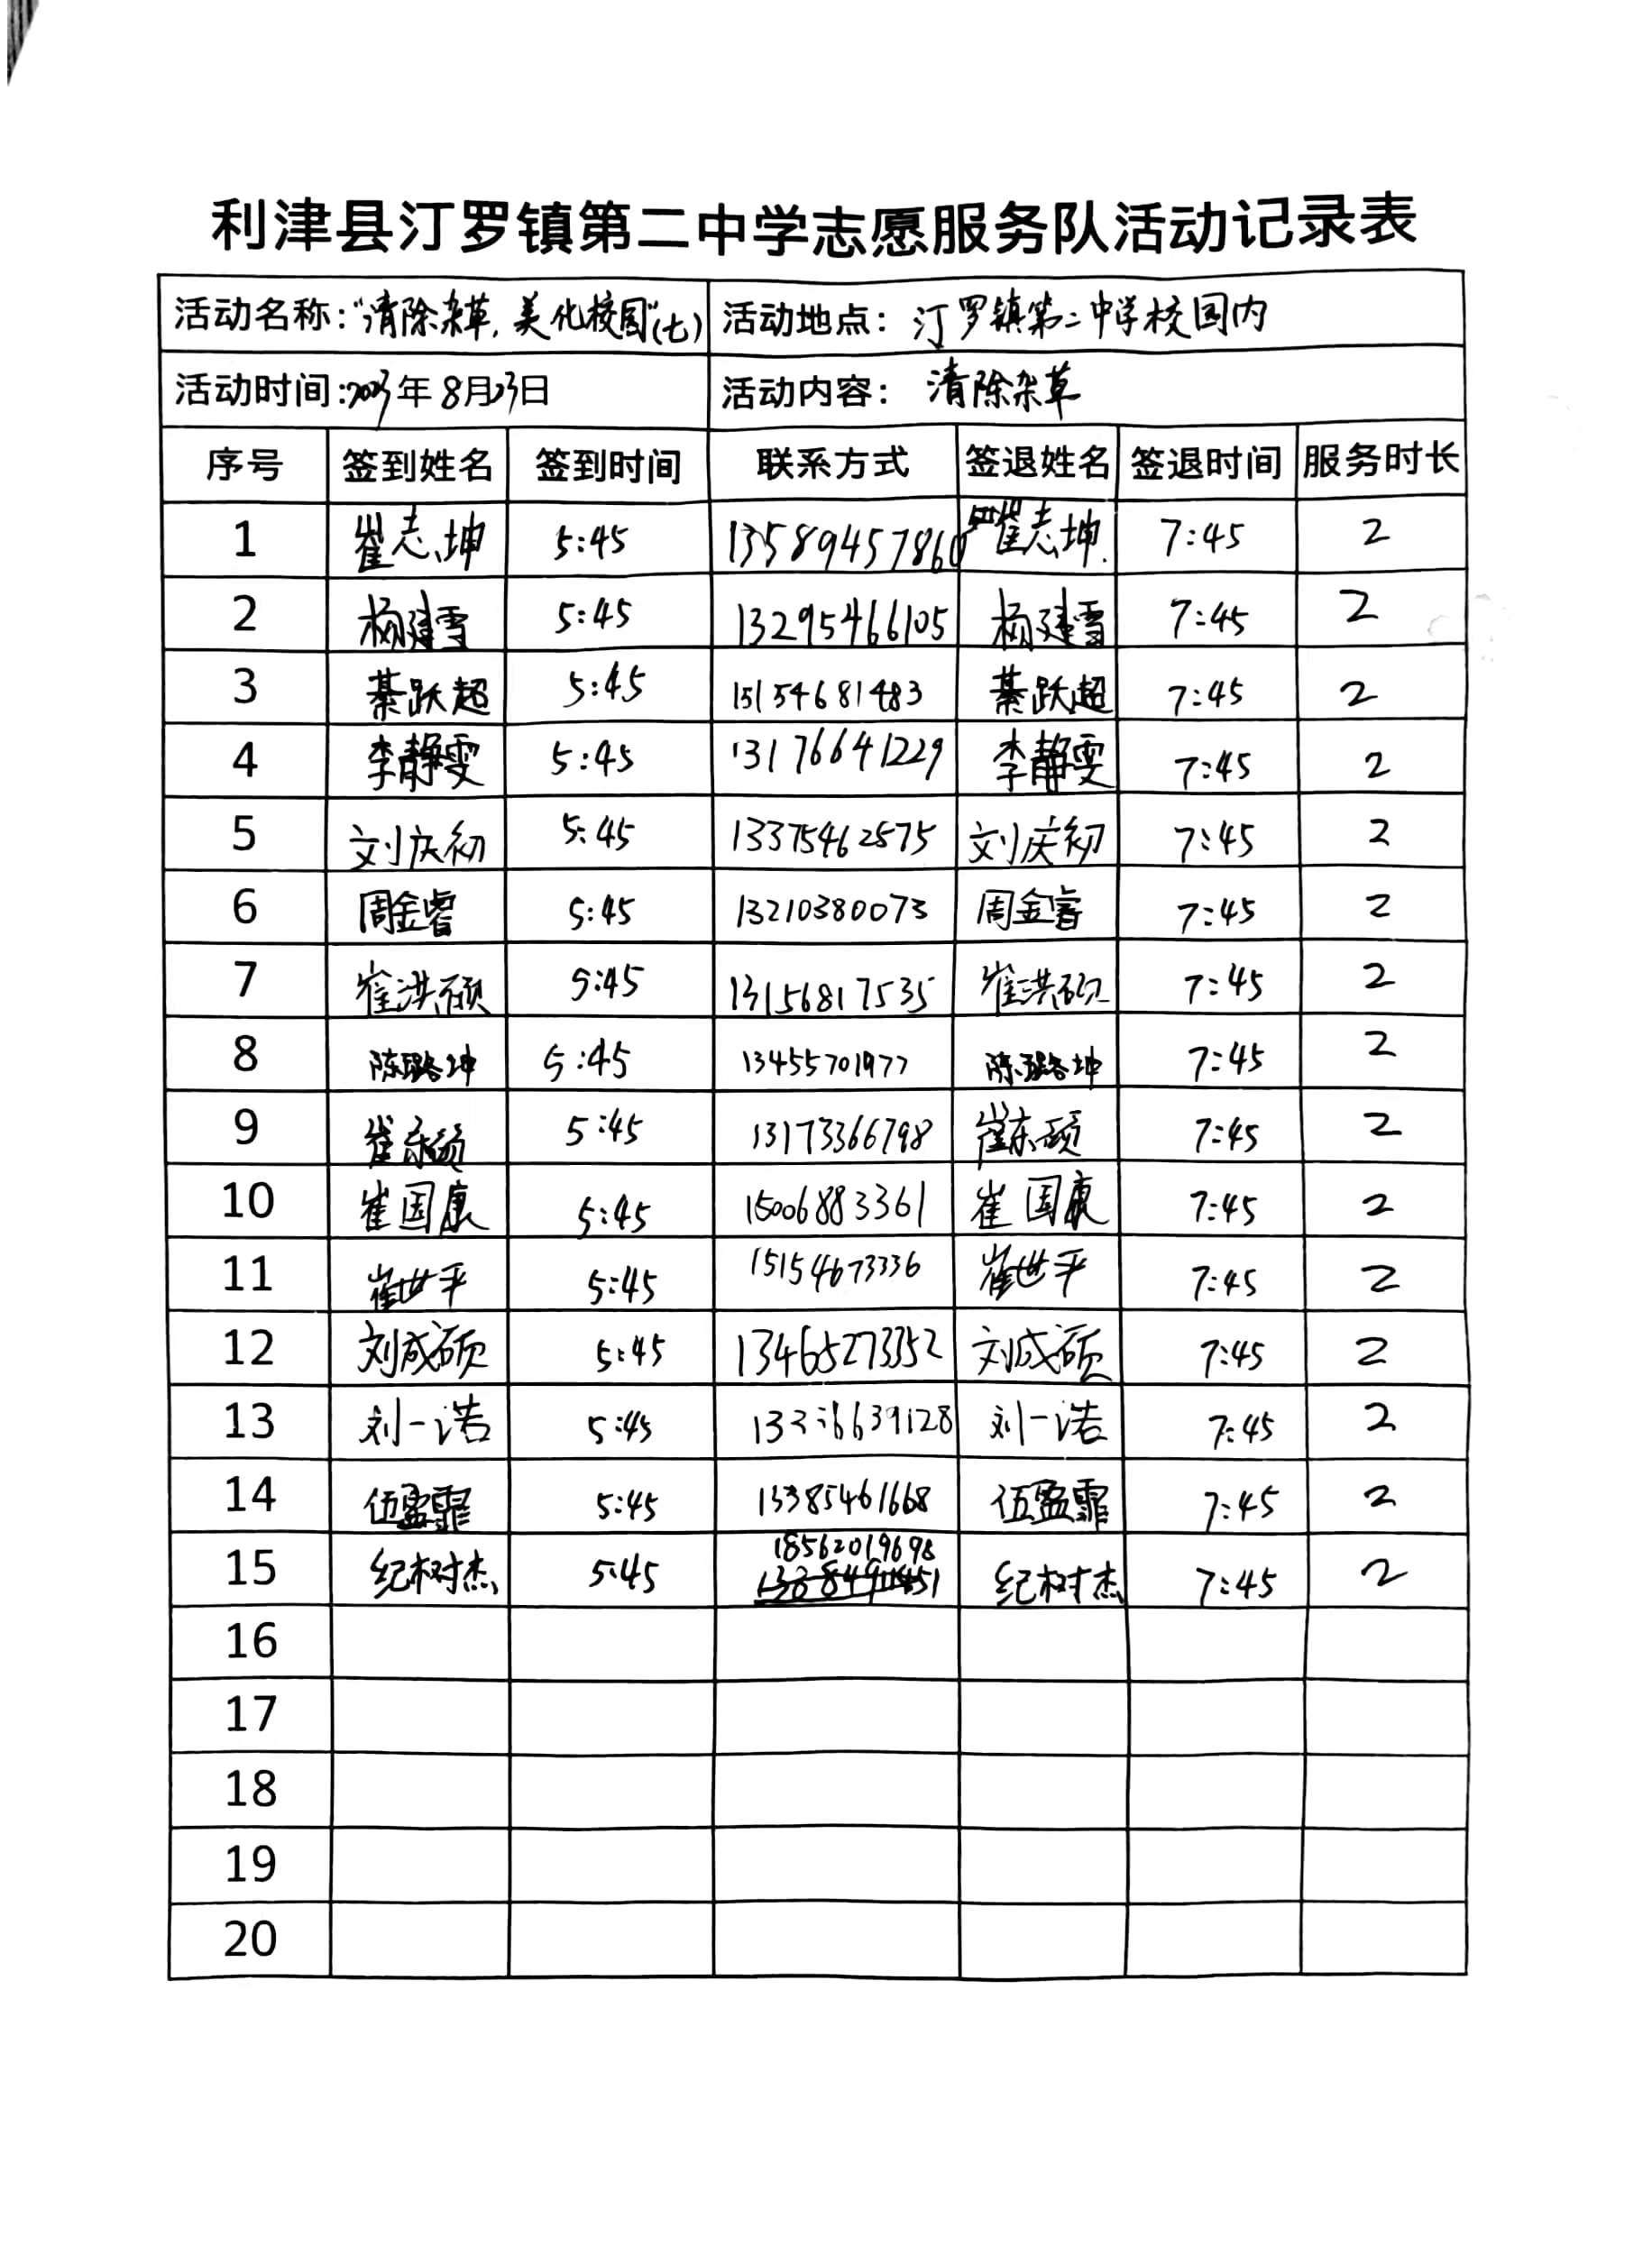 利津县汀罗镇第二中学志愿服务队活动记录表
活动名称:"清除杂草,美化校园"(七) 活动地点: 汀罗镇第二中学校园内
活动时间:2023年8月23日 活动内容: 清除杂草
序号 签到姓名 签到时间 联系方式 签退姓名 签退时间 服务时长
1 崔志坤 5:45 13589457860 崔志坤 7:45 2
2 杨建雪 5:45 13295466105 杨建雪 7:45 2
3 綦跃超 5:45 15154681483 綦跃超 7:45 2
4 李静雯 5:45 13176641229 李静雯 7:45 2
5 刘庆初 5:45 13375462575 刘庆初 7:45 2
6 周金睿 5:45 13210380073 周金睿 7:45 2
7 崔洪硕 5:45 13156817535 崔洪硕 7:45 2
8 陈璐坤 5:45 13455701977 陈璐坤 7:45 2
9 崔东硕 5:45 13173366798 崔东硕 7:45 2
10 崔国康 5:45 15006883361 崔国康 7:45 2
11 崔世平 5:45 15154673336 崔世平 7:45 2
12 刘成硕 5:45 13465273352 刘成硕 7:45 2
13 刘一诺 5:45 刘一诺 7:45 2
14 伍盈霏 5:45 13385461668 伍盈霏 7:45 2
15 纪树杰 5:45 18562019698 纪树杰 7:45 2
16
17
18
19
20